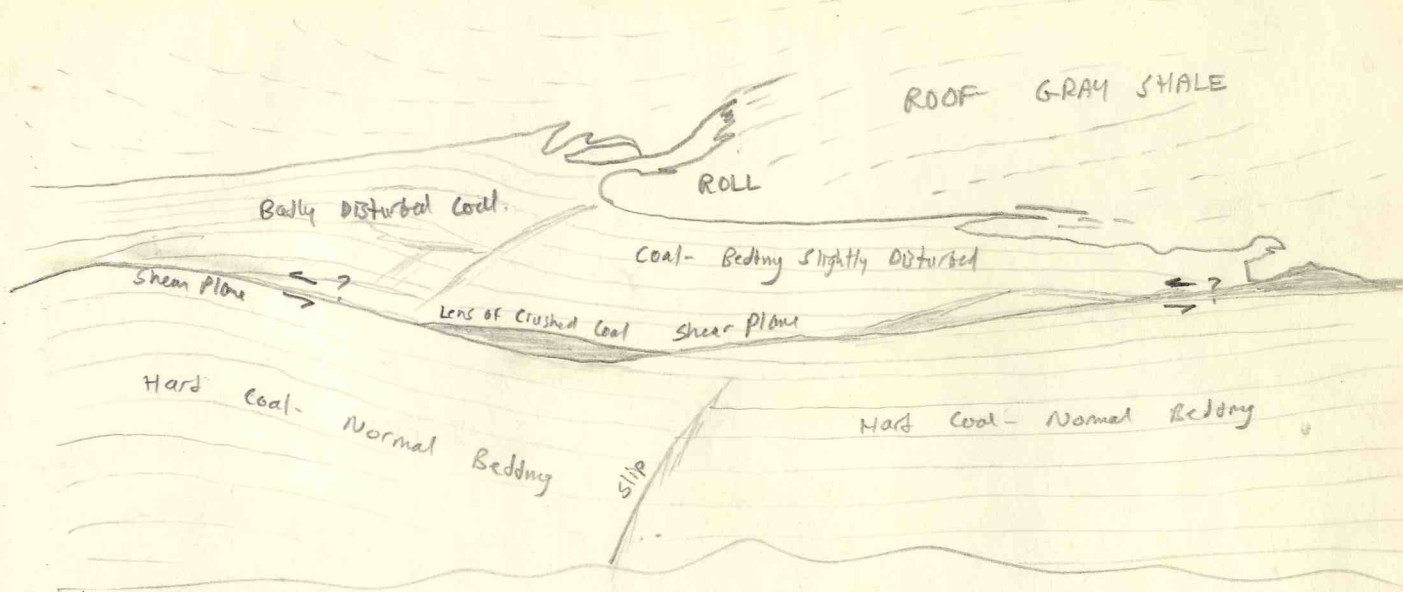 ROOF GRAY SHALE
ROLL
Badly Disturbed Coal.
Coal- Bedding Slightly Disturbed
Shear Plane
?
?
Lens of Crushed Coal
Shear Plane
Hard Coal- Normal Bedding
Hard Coal- Normal Bedding
Slip